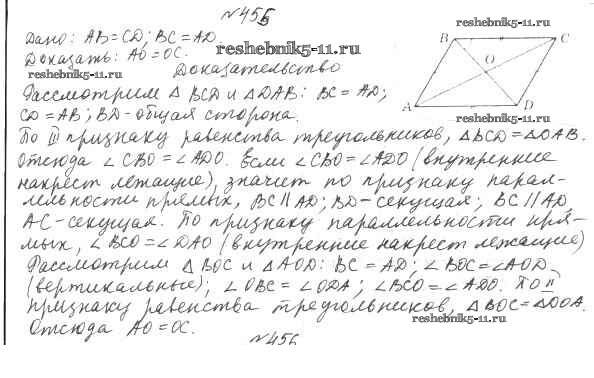 №455
Дано: AB=CD; BC=AD.
Доказать: AO=OC.
reshebnik5-11.ru
reshebnik5-11.ru
Доказательство
reshebnik5-11.ru
B C
O
A D
reshebnik5-11.ru
Рассмотрим △ BCD и △DAB: BC=AD;
CD=AB; BD-общая сторона.
По III признаку равенства треугольников, △BCD=△DAB.
Отсюда ∠CBO=∠ADO. Если ∠CBO=∠ADO (внутренние
накрест лежащие), значит по признаку парал-
лельности прямых, BC∥AD; BD-секущая; BC∥AD,
AC-секущая. По признаку параллельности пря-
мых, ∠BCO=∠DAO (внутренние накрест лежащие)
Рассмотрим △ BOC и △AOD: BC=AD; ∠BOC=∠AOD
(вертикальные); ∠OBC=∠ODA; ∠BCO=∠ADO. По II
признаку равенства треугольников, △BOC=△DOA.
Отсюда AO=OC.
reshebnik5-11.ru
№456